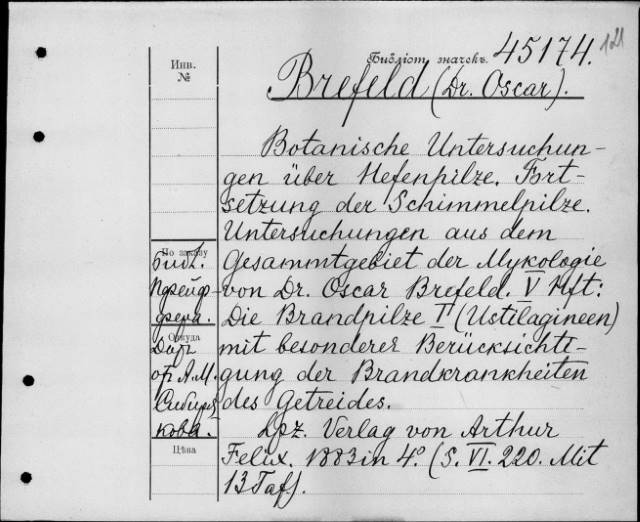 121
Инв.
№
Библіот. значекъ. 45174.
Brefeld (Dr. Oscar).
Botanische Untersuchun-
gen über Hefenpilze. Fort-
setzung der Schimmelpilze.
Untersuchungen aus dem
Gesammtgebiet der Mykologie
von Dr. Oscar Brefeld. V Hft:
Die Brandpilze II (Ustilagineen)
mit besonderer Berücksichti-
gung der Brandkrankheiten
des Getreides.
Lpz. Verlag von Arthur
Felix. 1883 in 4° (S. VI. 220. Mit
13 Taf).
По заказу
Библ.
Пфейф-
фера.
Откуда
Даръ
А. М.
Сибиря-
кова.
Цѣна